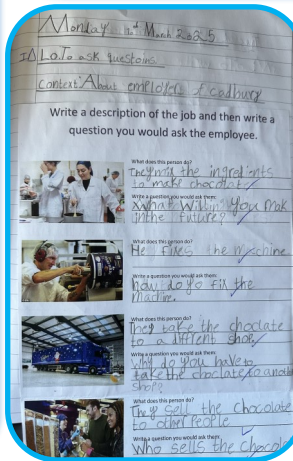 Monday 10th March 2025
L.O. To ask questoins
Context About employers of cadbury
Write a description of the job and then write a
question you would ask the employee.
What does this person do?
They mix the ingredients
to make chocolat
Write a question you would ask them:
What will you mak
in the future?
What does this person do?
He fixes the machine
Write a question you would ask them:
how do yo fix the
machine.
What does this person do?
They take the choclate
to a diffrent shop
Write a question you would ask them:
Why do you have to
take the choclate to anoth
shop?
What does this person do?
They sell the chocolate
to other People
Write a question you would ask them:
Who sells the chocola